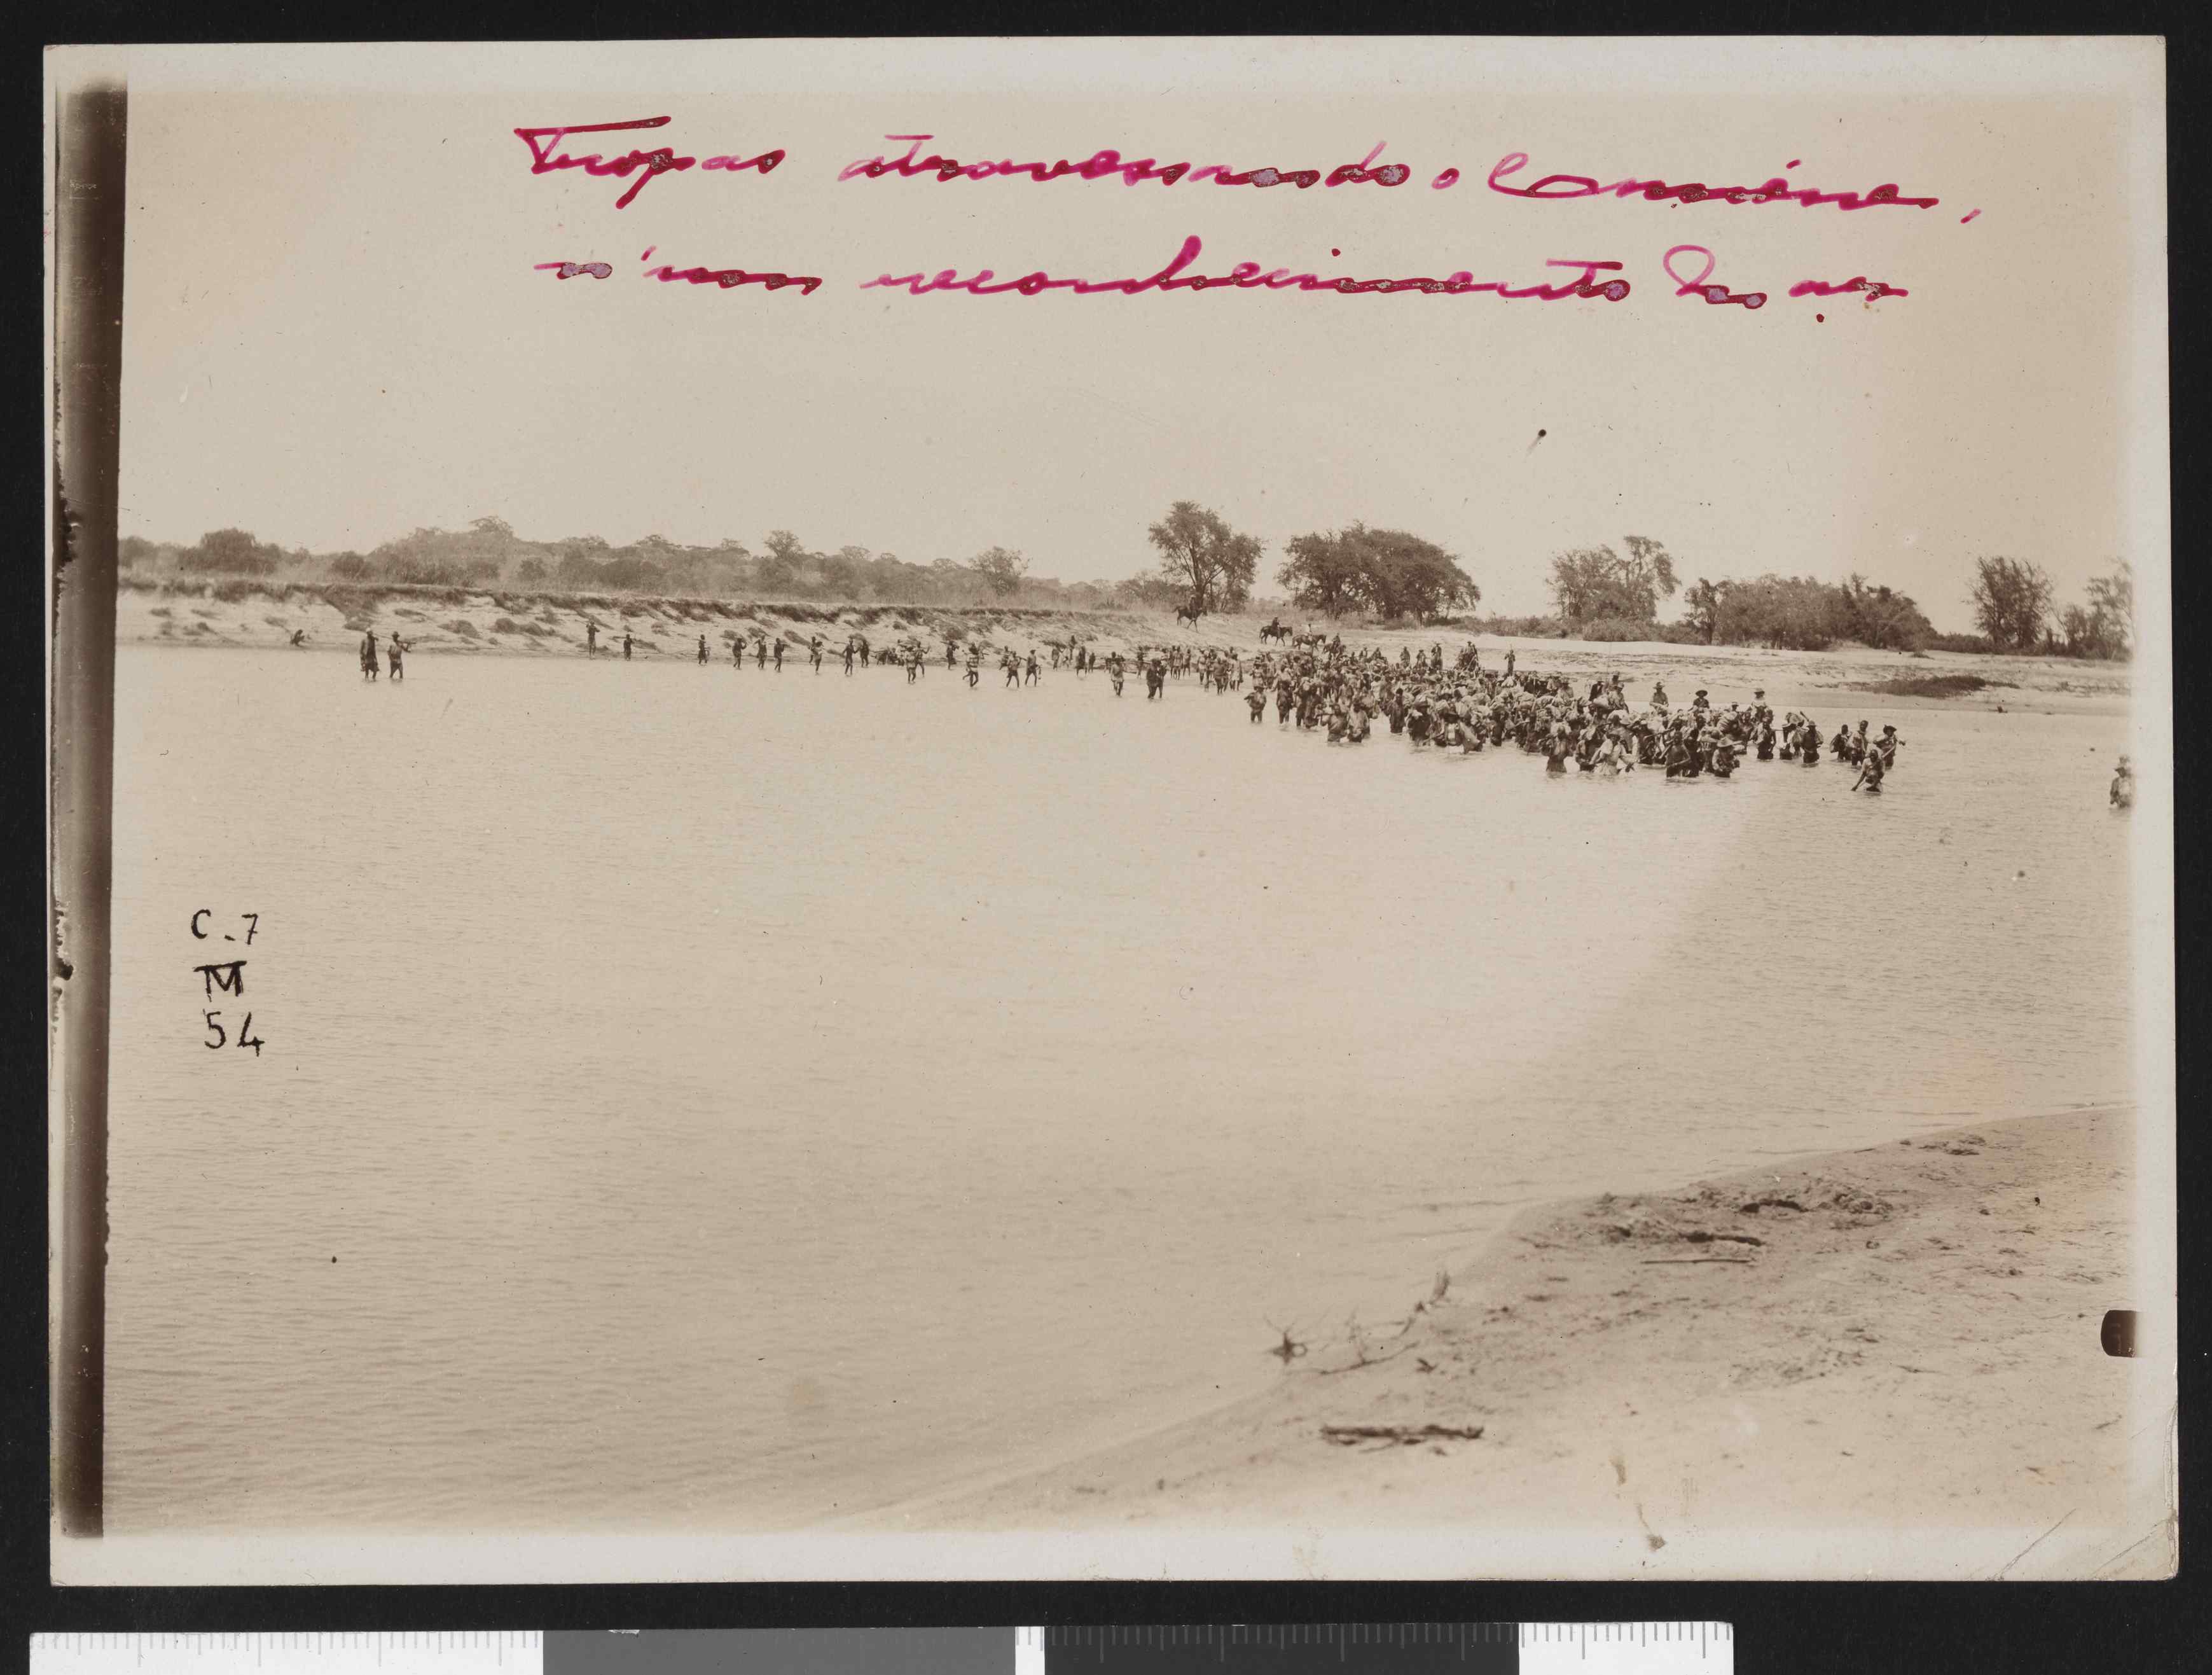 Tropas atravessando o
n'um reconhecimento
C.7
M
54